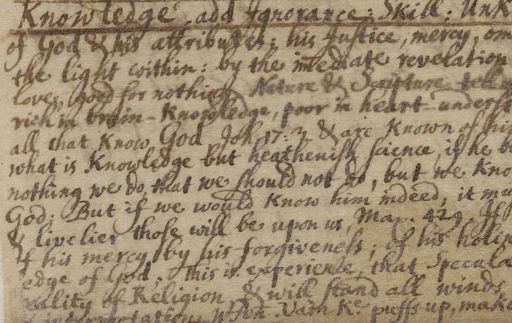 Knowledge, add Ignorance; Skill; Unk
of God & his attributes; his Justice, mercy, om
the light within: by the immediate revelation
love, good for nothing. Nature & Scripture tell
rich in brain-Knowledge, poor in heart-underst
all that know God Joh. 17: 3 & are Known of him
what is Knowledge but heathenish science, if he be
nothing we do, that we should not do, but we Kno
God: But if we would Know him indeed, it mu
& livelier those will be upon us, Max. 429. If
of his mercy by his forgiveness; of his holi
edge of God; This is experience, that specula
reality of Religion & will stand all winds
interpretation. When Vain Ke. puffs up, make